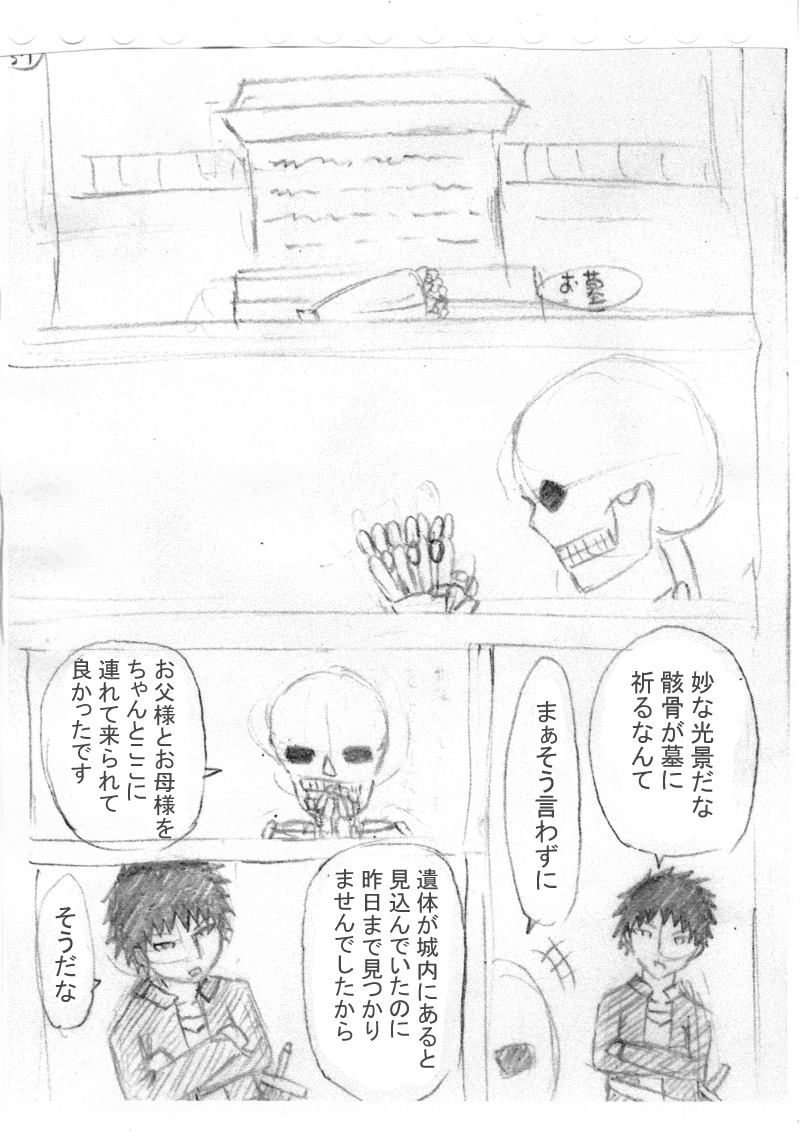 お墓
妙な光景だな
骸骨が墓に
祈るなんて
まぁそう言わずに
お父様とお母様を
ちゃんとここに
連れて来られて
良かったです
遺体が城内にあると
見込んでいたのに
昨日まで見つかり
ませんでしたから
そうだな